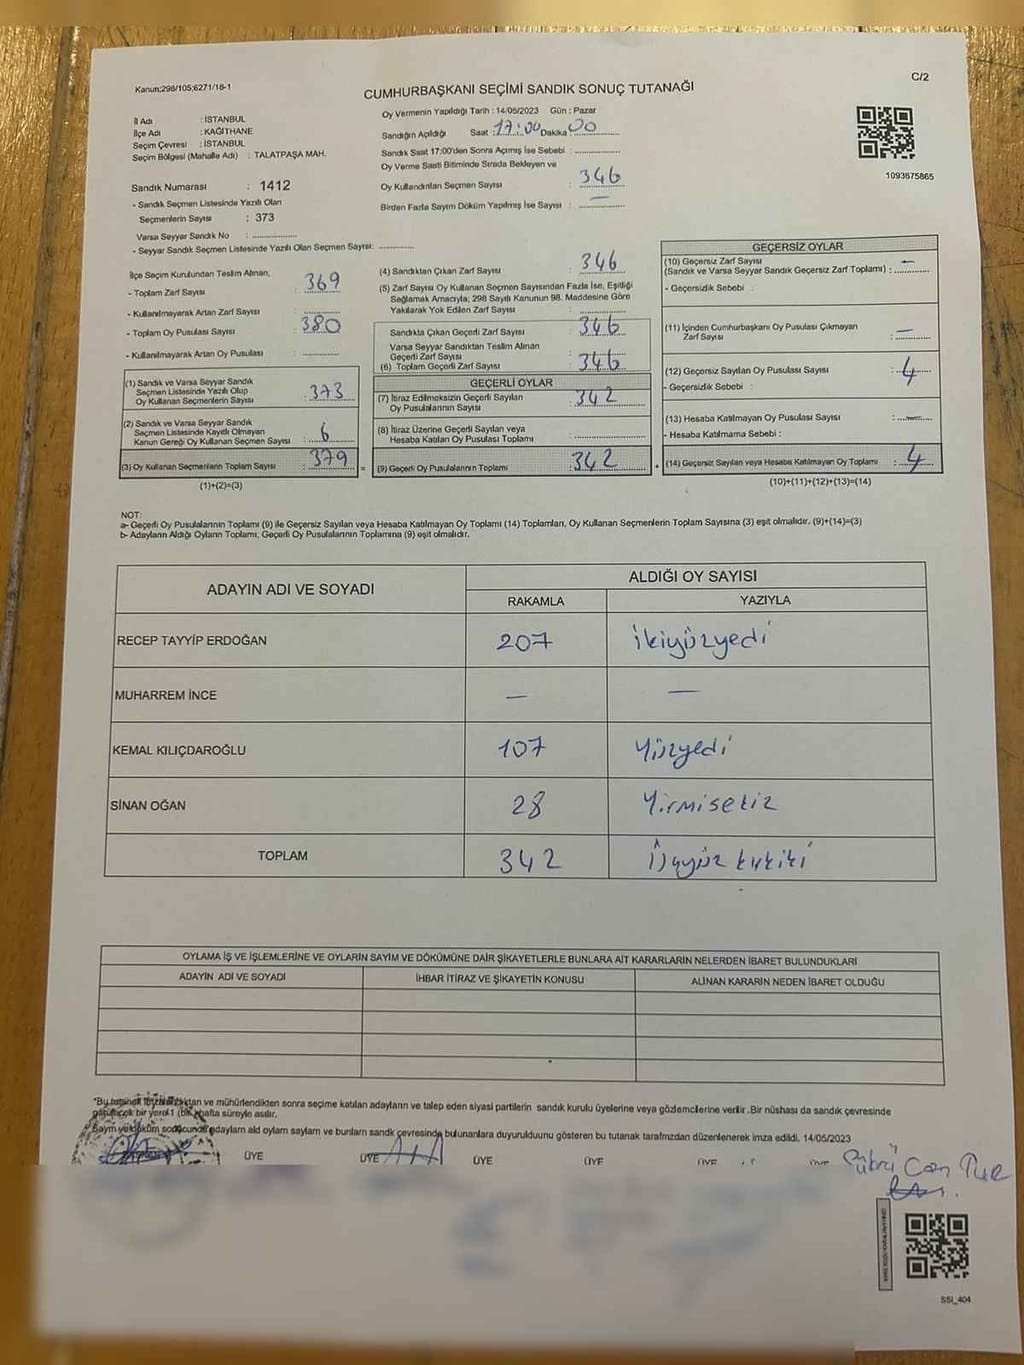 Kanun;298/105;6271/16-1
C/2
CUMHURBAŞKANI SEÇİMİ SANDIK SONUÇ TUTANAĞI
İl Adı : İSTANBUL
İlçe Adı : KAĞITHANE
Seçim Çevresi : İSTANBUL
Seçim Bölgesi (Mahalle Adı) : TALATPAŞA MAH.
Sandık Numarası : 1412
- Sandık Seçmen Listesinde Yazılı Olan
Seçmenlerin Sayısı : 373
Varsa Seyyar Sandık No :
- Seyyar Sandık Seçmen Listesinde Yazılı Olan Seçmen Sayısı:
Oy Vermenin Yapıldığı Tarih : 14/05/2023 Gün : Pazar
Sandığın Açıldığı Saat : 17:00 Dakika 00
Sandık Saat 17:00'den Sonra Açılmış İse Sebebi :
Oy Verme Saati Bitiminde Sırada Bekleyen ve
Oy Kullandırılan Seçmen Sayısı : 346
Birden Fazla Sayım Döküm Yapılmış İse Sayısı : —
1093675865
İlçe Seçim Kurulundan Teslim Alınan;
- Toplam Zarf Sayısı : 369
- Kullanılmayarak Artan Zarf Sayısı :
- Toplam Oy Pusulası Sayısı : 380
- Kullanılmayarak Artan Oy Pusulası :
(1) Sandık ve Varsa Seyyar Sandık
Seçmen Listesinde Yazılı Olup
Oy Kullanan Seçmenlerin Sayısı : 373
(2) Sandık ve Varsa Seyyar Sandık
Seçmen Listesinde Kayıtlı Olmayan
Kanun Gereği Oy Kullanan Seçmen Sayısı : 6
(3) Oy Kullanan Seçmenlerin Toplam Sayısı : 379
(1)+(2)=(3)
(4) Sandıktan Çıkan Zarf Sayısı : 346
(5) Zarf Sayısı Oy Kullanan Seçmen Sayısından Fazla İse, Eşitliği
Sağlamak Amacıyla; 298 Sayılı Kanunun 98. Maddesine Göre
Yakılarak Yok Edilen Zarf Sayısı :
Sandıkta Çıkan Geçerli Zarf Sayısı : 346
Varsa Seyyar Sandıktan Teslim Alınan
Geçerli Zarf Sayısı
(6) Toplam Geçerli Zarf Sayısı : 346
GEÇERLİ OYLAR
(7) İtiraz Edilmeksizin Geçerli Sayılan
Oy Pusulalarının Sayısı : 342
(8) İtiraz Üzerine Geçerli Sayılan veya
Hesaba Katılan Oy Pusulası Toplamı :
= (9) Geçerli Oy Pusulalarının Toplamı : 342
GEÇERSİZ OYLAR
(10) Geçersiz Zarf Sayısı —
(Sandık ve Varsa Seyyar Sandık Geçersiz Zarf Toplamı) :
- Geçersizlik Sebebi :
(11) İçinden Cumhurbaşkanı Oy Pusulası Çıkmayan
Zarf Sayısı : —
(12) Geçersiz Sayılan Oy Pusulası Sayısı : 4
- Geçersizlik Sebebi :
(13) Hesaba Katılmayan Oy Pusulası Sayısı : —
- Hesaba Katılmama Sebebi :
+ (14) Geçersiz Sayılan veya Hesaba Katılmayan Oy Toplamı : 4
(10)+(11)+(12)+(13)=(14)
NOT:
a- Geçerli Oy Pusulalarının Toplamı (9) ile Geçersiz Sayılan veya Hesaba Katılmayan Oy Toplamı (14) Toplamları, Oy Kullanan Seçmenlerin Toplam Sayısına (3) eşit olmalıdır. (9)+(14)=(3)
b- Adayların Aldığı Oyların Toplamı, Geçerli Oy Pusulalarının Toplamına (9) eşit olmalıdır.
ADAYIN ADI VE SOYADI
ALDIĞI OY SAYISI
RAKAMLA YAZIYLA
RECEP TAYYİP ERDOĞAN 207 ikiyüzyedi
MUHARREM İNCE — —
KEMAL KILIÇDAROĞLU 107 Yüzyedi
SİNAN OĞAN 28 Yirmisekiz
TOPLAM 342 üçyüz kırkiki
OYLAMA İŞ VE İŞLEMLERİNE VE OYLARIN SAYIM VE DÖKÜMÜNE DAİR ŞİKAYETLERLE BUNLARA AİT KARARLARIN NELERDEN İBARET BULUNDUKLARI
ADAYIN ADI VE SOYADI İHBAR İTİRAZ VE ŞİKAYETİN KONUSU ALINAN KARARIN NEDEN İBARET OLDUĞU
*Bu tutanak ve mühürlendikten sonra seçime katılan adayların ve talep eden siyasi partilerin sandık kurulu üyelerine veya gözlemcilerine verilir. Bir nüshası da sandık çevresinde
bir yere 1 (bir) hafta süreyle asılır.
adayların aldı oyların sayıları ve bunların sandık çevresinde bulunanlara duyurulduunu gösteren bu tutanak tarafımızdan düzenlenerek imza edildi. 14/05/2023
ÜYE ÜYE ÜYE ÜYE
Şükrü Can
SSI_404